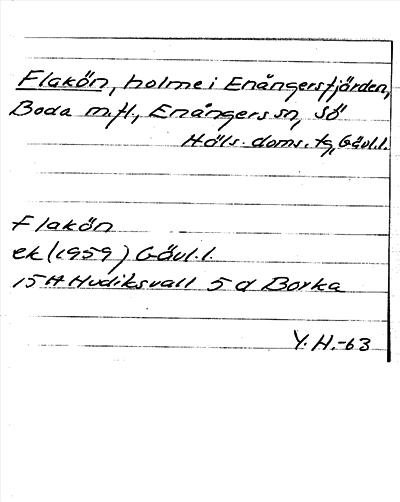 Flakön, holme i Enångersfjörden,
Boda m.fl., Enångers sn, Sö
Häls. doms. tg, Gävl.l.
Flakön
ek (1959) Gävl.l.
15 H Hudiksvall 5 d Borka
Y. H.-63